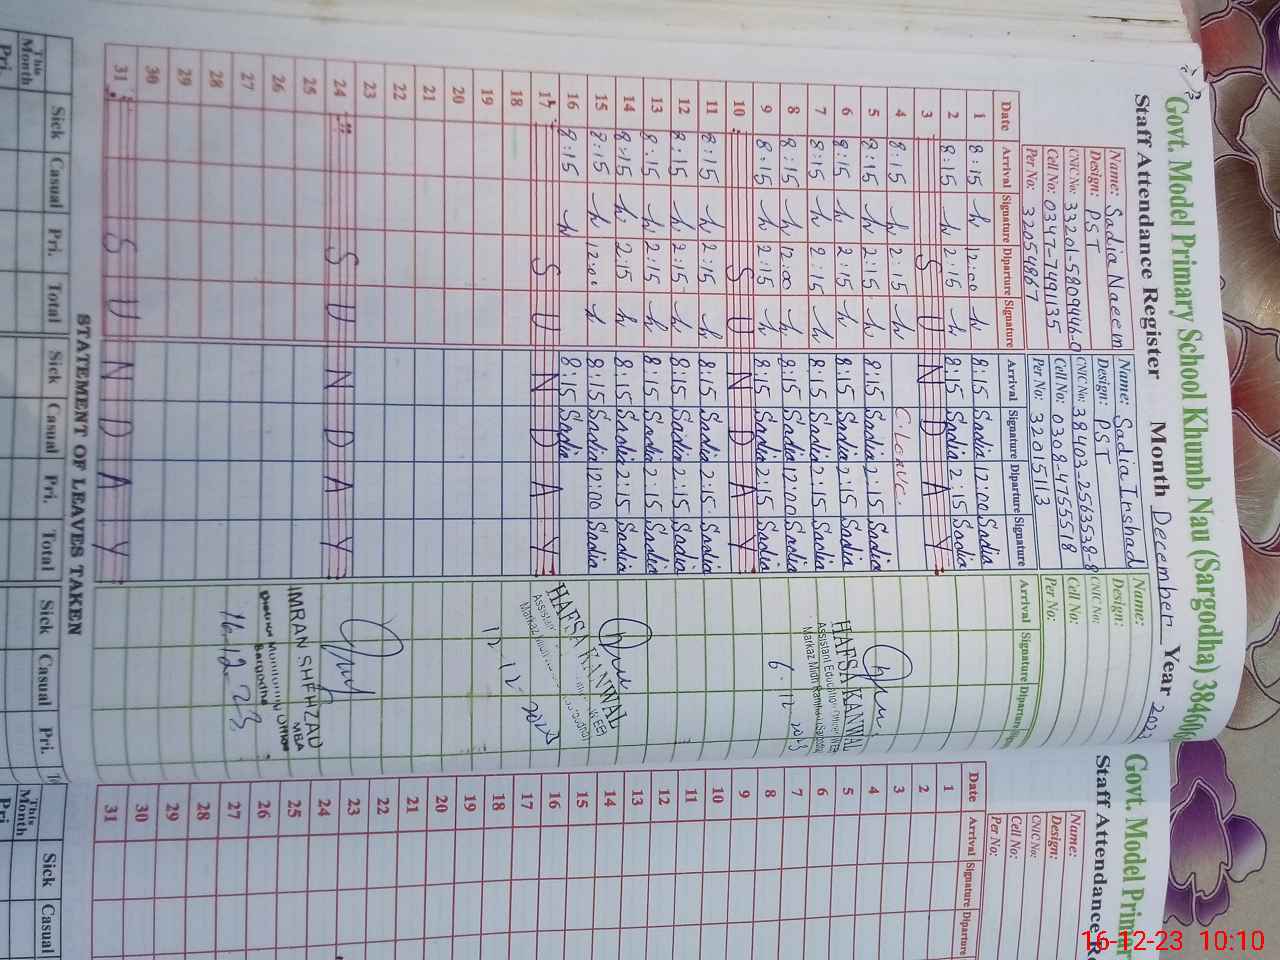 Govt. Model Primary School Khumb Nau (Sargodha) 38460
Staff Attendance Register Month December Year 202
Name: Sadia Naeem Name: Sadia Irshad Name:
Design: PST Design: PST Design:
CNIC No: 33201-5809446-0 CNIC No: 38403-2563538-8 CNIC No:
Cell No: 0347-7491135 Cell No: 0308-4755518 Cell No:
Per No: 32054867 Per No: 32015113 Per No:
Date Arrival Signature Diparture Signature Arrival Signature Diparture Signature Arrival Signature Diparture
1 8:15 12:00 8:15 Sadia 12:00 Sadia
2 8:15 2:15 8:15 Sadia 2:15 Sadia
3 S U N D A Y
4 8:15 2:15 C leave.
5 8:15 2:15 8:15 Sadia 2:15 Sadia
6 8:15 2:15 8:15 Sadia 2:15 Sadia
7 8:15 2:15 8:15 Sadia 2:15 Sadia
8 8:15 12:00 8:15 Sadia 12:00 Sadia
9 8:15 2:15 8:15 Sadia 2:15 Sadia
10 S U N D A Y
11 8:15 2:15 8:15 Sadia 2:15 Sadia
12 8:15 2:15 8:15 Sadia 2:15 Sadia
13 8:15 2:15 8:15 Sadia 2:15 Sadia
14 8:15 2:15 8:15 Sadia 2:15 Sadia
15 8:15 12:00 8:15 Sadia 12:00 Sadia
16 8:15 8:15 Sadia
17 S U N D A Y
18
19
20
21
22
23
24 S U N D A Y
25
26
27
28
29
30
31 S U N D A Y
HAFSA KANWAL
Assistant Education Officer
6-12-2023
HAFSA KANWAL
12-12-2023
IMRAN SHEHZAD
MBA
District Monitoring Officer
Sargodha
16.12.23
STATEMENT OF LEAVES TAKEN
Sick Casual Pri. Total Sick Casual Pri. Total Sick Casual Pri.
This Month
Pri.
Govt. Model Primar
Staff Attendance R
Name:
Design:
CNIC No:
Cell No:
Per No:
Date Arrival Signature Diparture
1
2
3
4
5
6
7
8
9
10
11
12
13
14
15
16
17
18
19
20
21
22
23
24
25
26
27
28
29
30
31
Sick Casual
This Month
Pri
16-12-23 10:10